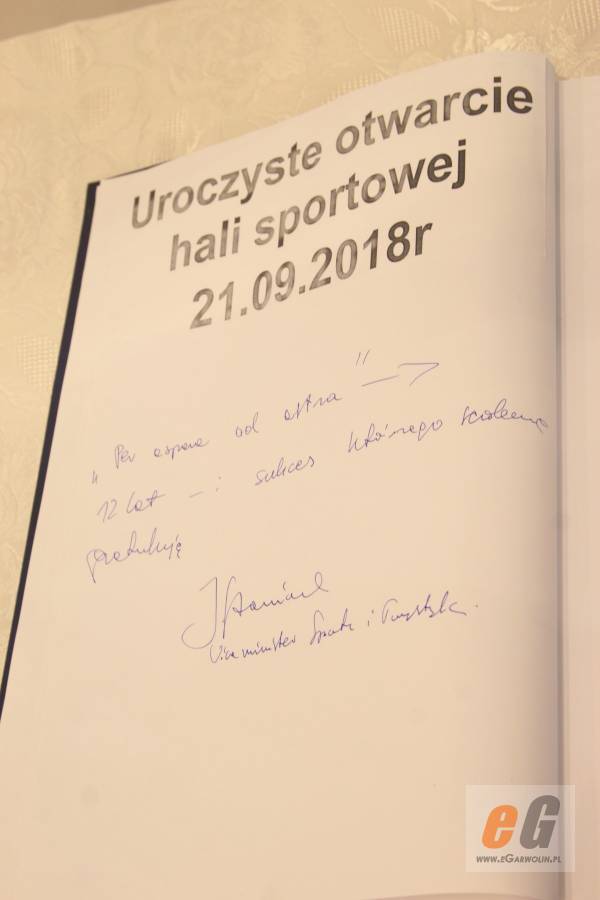 Uroczyste otwarcie
hali sportowej
21.09.2018r
„Per aspera ad astra" →
12 lat – i sukces którego
gratuluję
Wiceminister Sportu i Turystyki.
eG
www.eGarwolin.pl